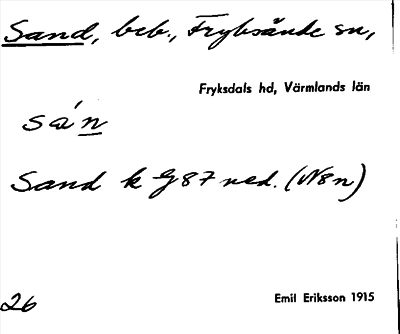 Sand, beb., Fryksände sn,
Fryksdals hd, Värmlands län
sa´n
Sand k G87 ned. (N8n)
26
Emil Eriksson 1915